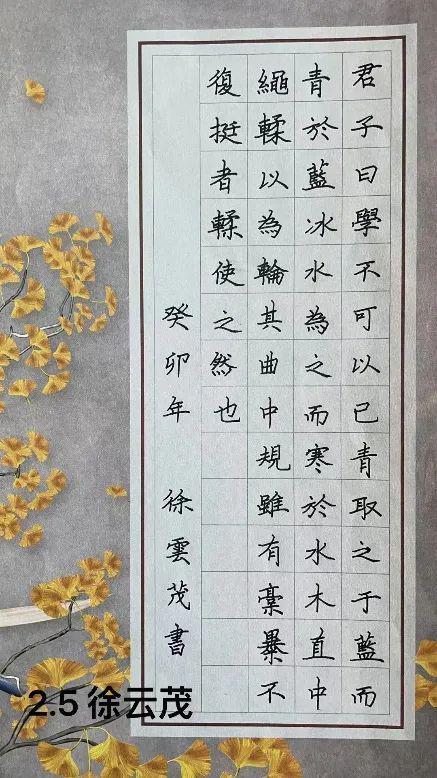 君子曰學不可以已青取之于藍而
青於藍冰水為之而寒於水木直中
繩輮以為輪其曲中規雖有槀暴不
復挺者輮使之然也
癸卯年 徐雲茂書
2.5 徐云茂